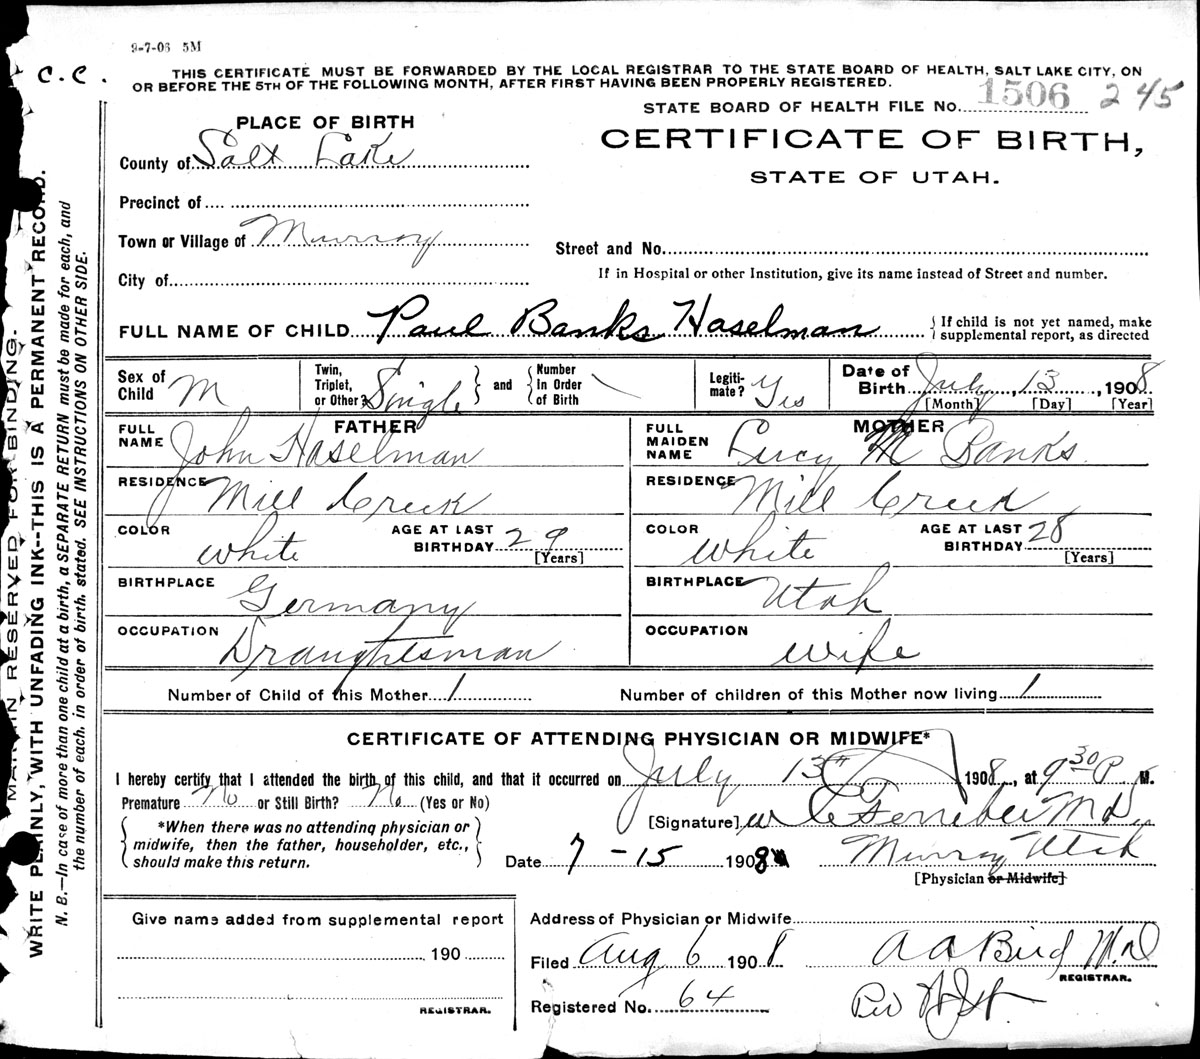 9-7-06 5M
C. C.
THIS CERTIFICATE MUST BE FORWARDED BY THE LOCAL REGISTRAR TO THE STATE BOARD OF HEALTH, SALT LAKE CITY, ON
OR BEFORE THE 5TH OF THE FOLLOWING MONTH, AFTER FIRST HAVING BEEN PROPERLY REGISTERED.
STATE BOARD OF HEALTH FILE No. 1506 245
PLACE OF BIRTH
CERTIFICATE OF BIRTH,
STATE OF UTAH.
County of Salt Lake
Precinct of
Town or Village of Murray
Street and No.
City of
If in Hospital or other Institution, give its name instead of Street and number.
FULL NAME OF CHILD Paul Banks Haselman { If child is not yet named, make
supplemental report, as directed
Sex of Child M Twin, Triplet, or Other? Single } and { Number In Order of Birth \ Legiti- mate? Yes Date of Birth July 13, 1908
[Month] [Day] [Year]
FATHER
FULL NAME John Haselman
RESIDENCE Mill Creek
COLOR white AGE AT LAST BIRTHDAY 29
[Years]
BIRTHPLACE Germany
OCCUPATION Draughtsman
MOTHER
FULL MAIDEN NAME Lucy M Banks
RESIDENCE Mill Creek
COLOR white AGE AT LAST BIRTHDAY 28
[Years]
BIRTHPLACE Utah
OCCUPATION wife
Number of Child of this Mother 1 Number of children of this Mother now living 1
CERTIFICATE OF ATTENDING PHYSICIAN OR MIDWIFE*
I hereby certify that I attended the birth of this child, and that it occurred on July 13th 1908, at 9 30 P M.
Premature No or Still Birth? No (Yes or No)
{ *When there was no attending physician or
midwife, then the father, householder, etc.,
should make this return. }
[Signature] M D.
Date 7-15 1908 Murray Utah
[Physician or Midwife]
Give name added from supplemental report
190
REGISTRAR.
Address of Physician or Midwife
Filed Aug 6 1908 A A Bird M.D
REGISTRAR.
Registered No. 64
Per
MARGIN RESERVED FOR BINDING.
WRITE PLAINLY, WITH UNFADING INK--THIS IS A PERMANENT RECORD.
N. B.—In case of more than one child at a birth, a SEPARATE RETURN must be made for each, and
the number of each, in order of birth, stated. SEE INSTRUCTIONS ON OTHER SIDE.